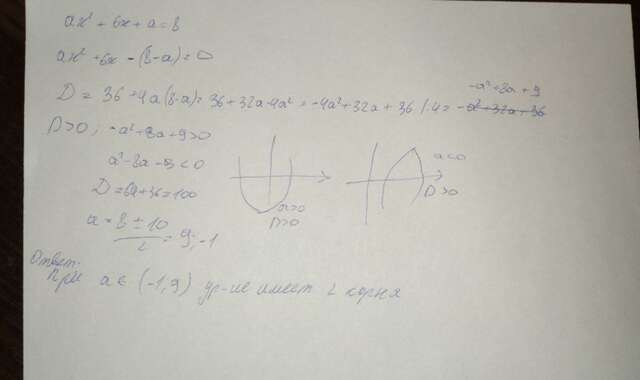 ax² + 6x + a = 8
ax² + 6x - (8-a) = 0
-a² + 8a + 9
D = 36 + 4a(8-a) = 36 + 32a - 4a² = -4a² + 32a + 36 | :4 = -a² + 32a + 36
D>0; -a² + 8a + 9 > 0
a² - 8a - 9 < 0
D = 64 + 36 = 100
a = 8 ± 10 / 2 = 9; -1
a>0
D>0
a<0
D>0
Ответ:
при a ∈ (-1, 9) ур-ие имеет 2 корня